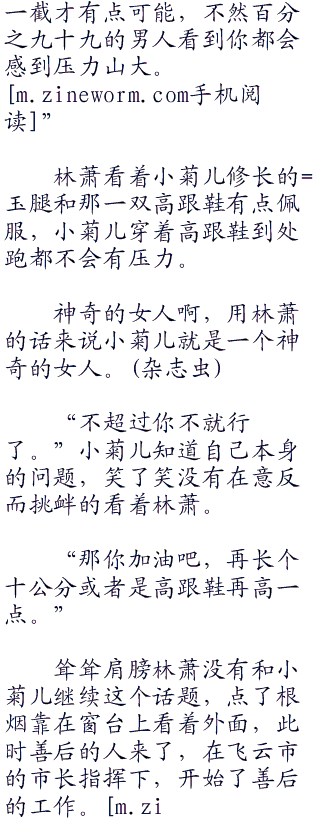 一截才有点可能，不然百分
之九十九的男人看到你都会
感到压力山大。
[m.zineworm.com手机阅
读]”
林萧看着小菊儿修长的=
玉腿和那一双高跟鞋有点佩
服，小菊儿穿着高跟鞋到处
跑都不会有压力。
神奇的女人啊，用林萧
的话来说小菊儿就是一个神
奇的女人。(杂志虫)
“不超过你不就行
了。”小菊儿知道自己本身
的问题，笑了笑没有在意反
而挑衅的看着林萧。
“那你加油吧，再长个
十公分或者是高跟鞋再高一
点。”
耸耸肩膀林萧没有和小
菊儿继续这个话题，点了根
烟靠在窗台上看着外面，此
时善后的人来了，在飞云市
的市长指挥下，开始了善后
的工作。[m.zi